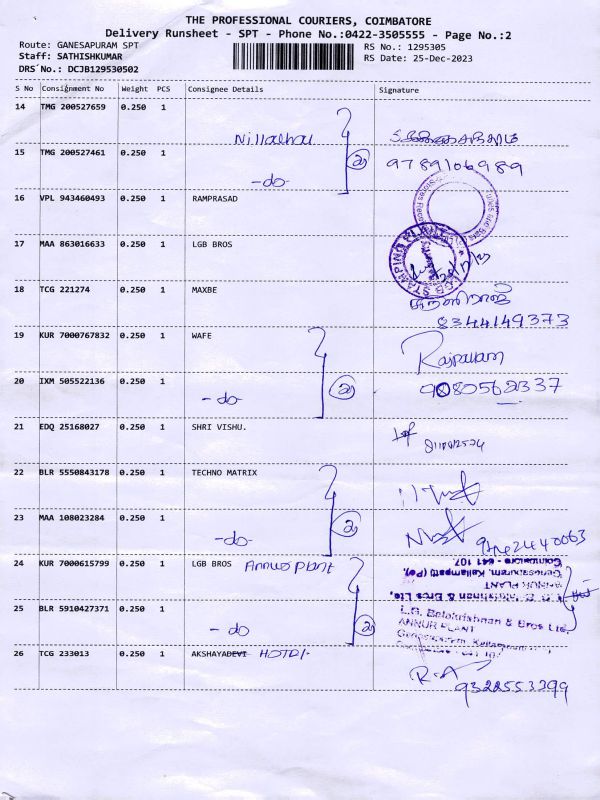 THE PROFESSIONAL COURIERS, COIMBATORE
Delivery Runsheet - SPT - Phone No.:0422-3505555 - Page No.:2
Route: GANESAPURAM SPT
RS No.: 1295305
Staff: SATHISHKUMAR
RS Date: 25-Dec-2023
DRS No.: DCJB129530502
S No Consignment No Weight PCS Consignee Details Signature
14 TMG 200527659 0.250 1
2
15 TMG 200527461 0.250 1
9789106989
-do-
16 VPL 943460493 0.250 1 RAMPRASAD
17 MAA 863016633 0.250 1 LGB BROS
STAMPING PLANT
18 TCG 221274 0.250 1 MAXBE
8344149373
19 KUR 7000767832 0.250 1 WAFE
2
20 IXM 505522136 0.250 1
-do-
21 EDQ 25168027 0.250 1 SHRI VISHU.
22 BLR 5550843178 0.250 1 TECHNO MATRIX
2
23 MAA 108023284 0.250 1
-do-
24 KUR 7000615799 0.250 1 LGB BROS Annur plant
ANNUR PLANT
25 BLR 5910427371 0.250 1
L.G. Balakrishnan & Bros Ltd,
ANNUR PLANT
-do
2
26 TCG 233013 0.250 1 AKSHAYADEVI HOTEL
R.A
9322553299